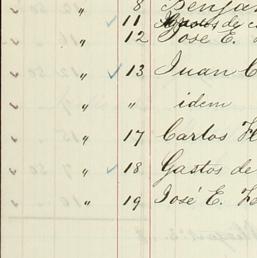 " 8 Benjam
✓ 11 Gastos de c
✓ " 12 José E.
✓ " ✓ 13 Juan C
✓ " " idem
✓ " 17 Carlos F
✓ " ✓ 18 Gastos de
✓ " 19 José E. Fe